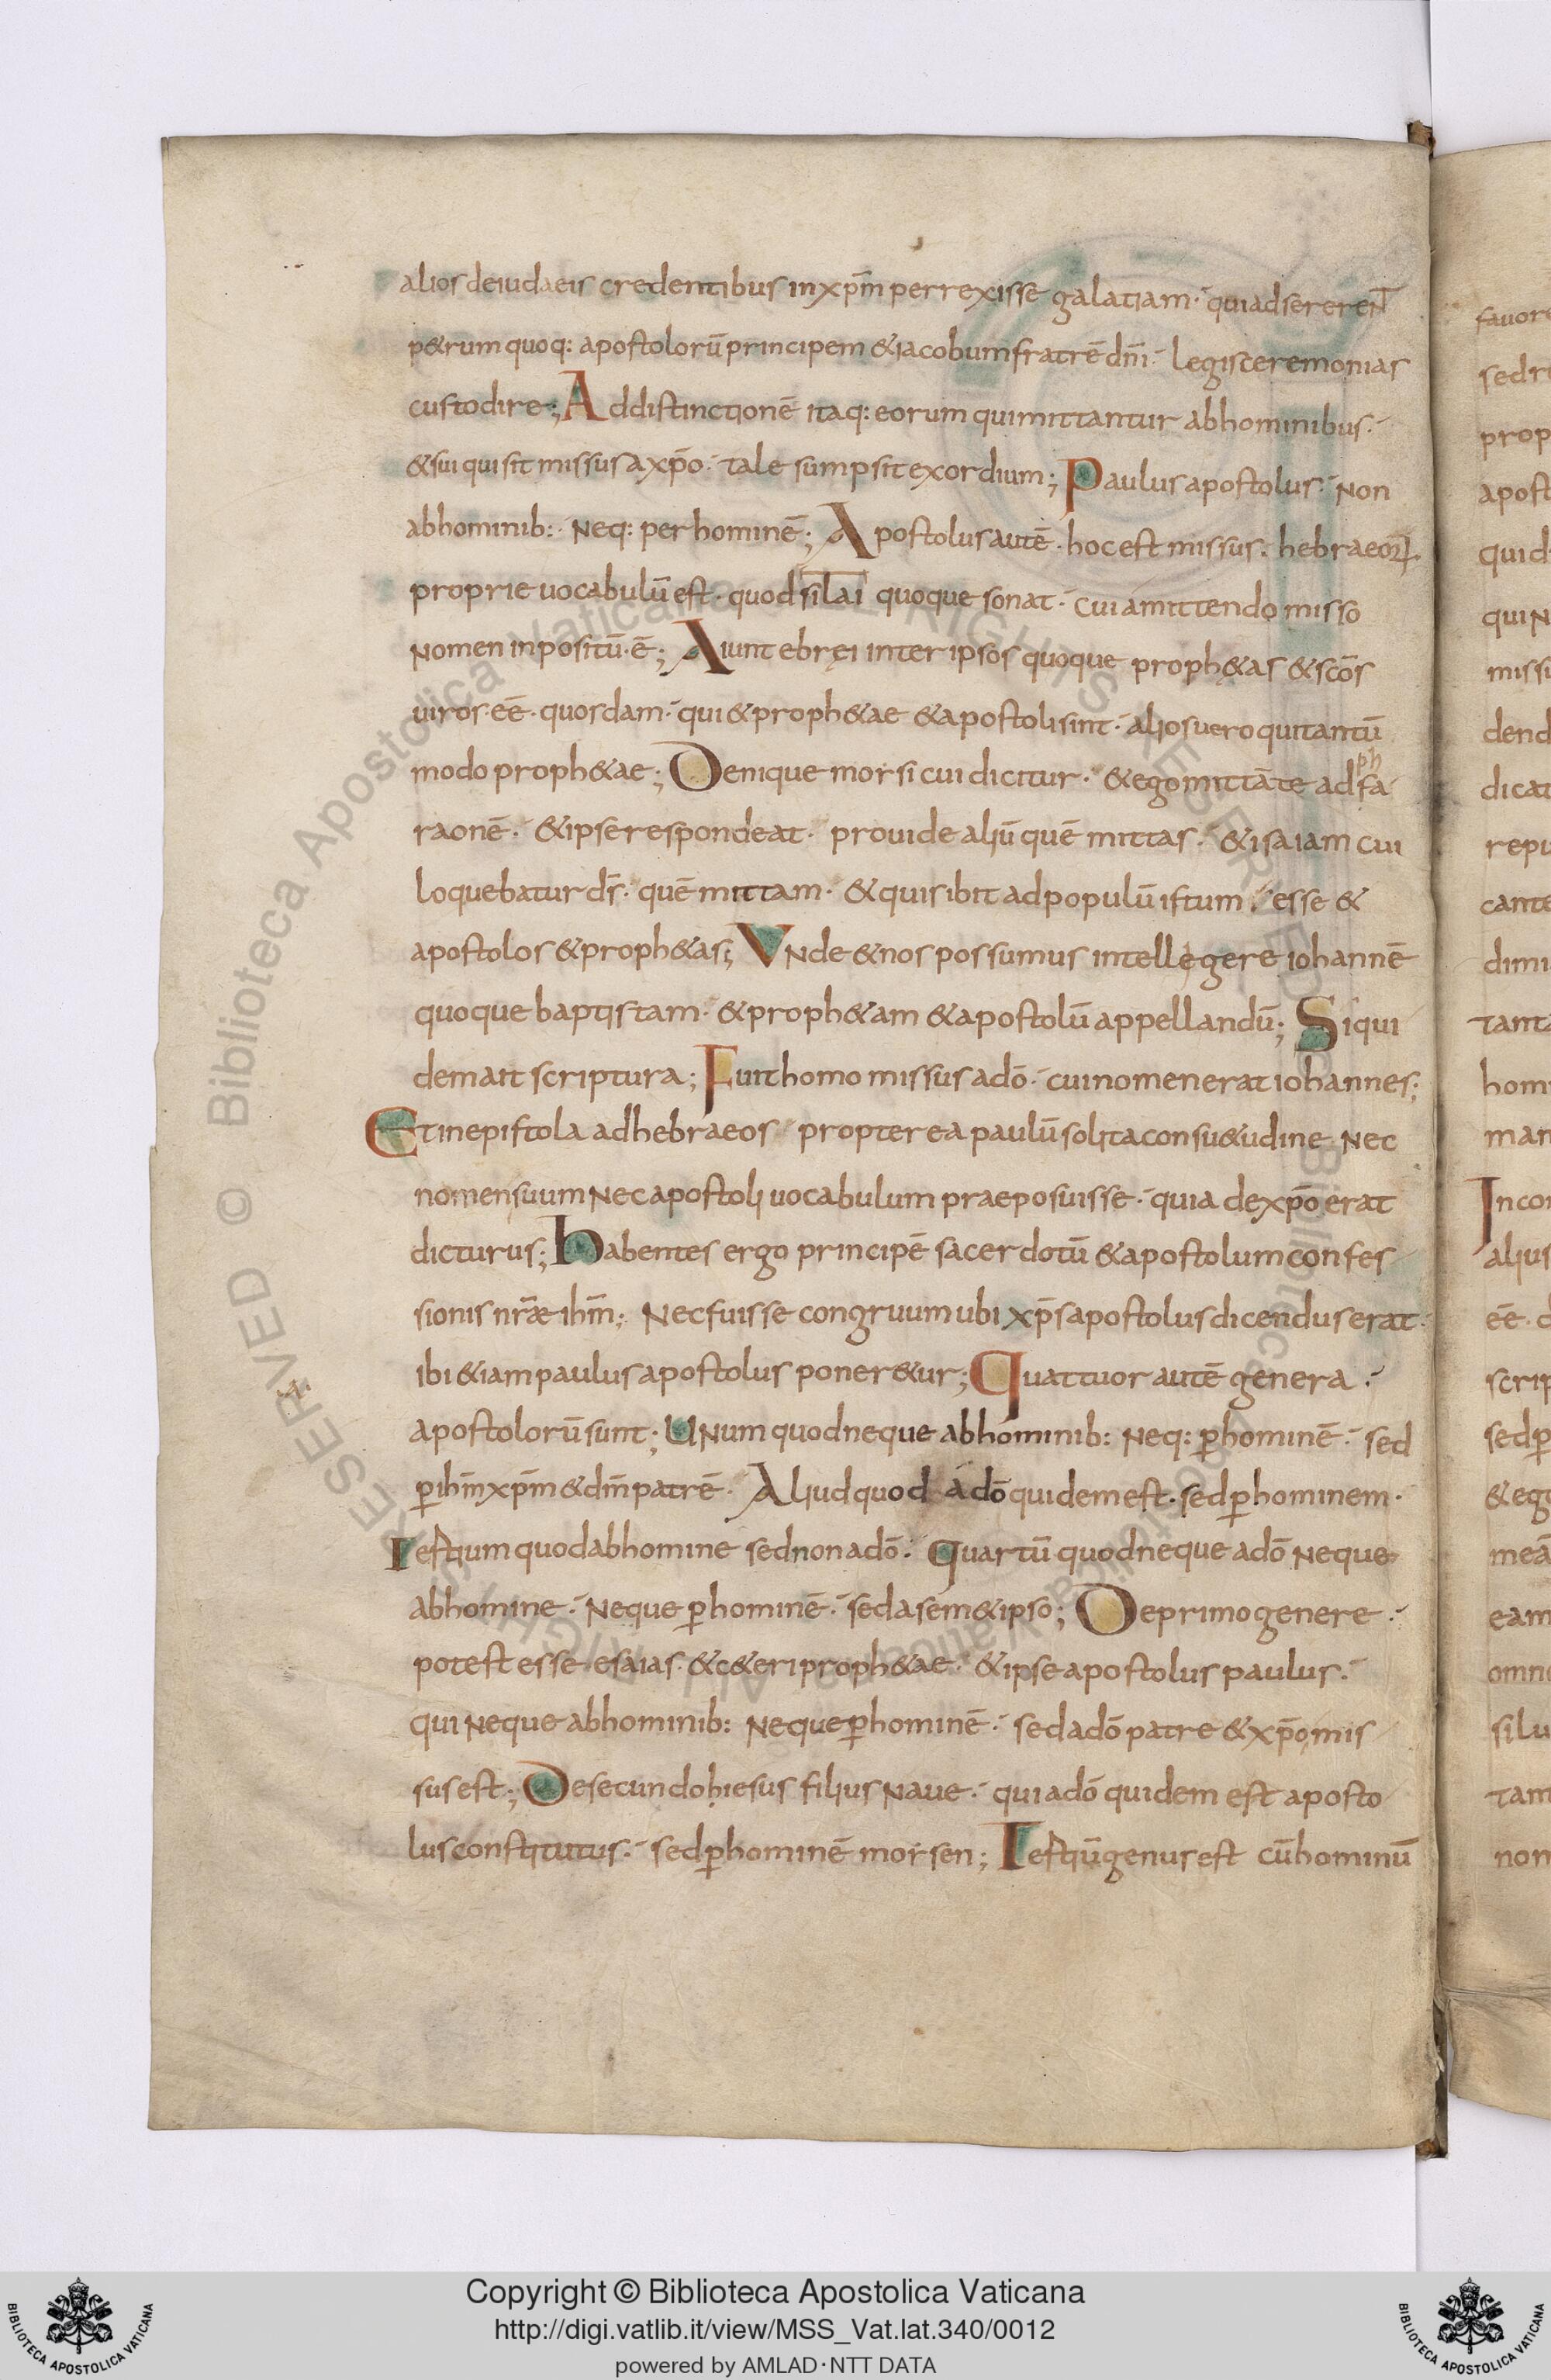 alios deiudaeis credentibus inxp̄m perrexisse galatiam· quiadsererent
p&rum quoq: apostolorū principem &iacobum fratrē dn̄i· legis ceremonias
custodire; Addistinctionē itaq: eorum quimittantur abhominibus·
&sui quisit missus axpō· tale sumpsit exordium; Paulus apostolus· Non
abhominib:· Neq: per hominē; Apostolus autē· hoc est missus· hebraeoꝝ·
proprie uocabulū est· quod silai quoque sonat· cui amittendo misso
Nomen inpositū·ē; Aiunt ebręi inter ipsos quoque proph&as &scōs
uiros·eē· quosdam· qui &proph&ae &apostoli sint· alios uero qui tantū
modo proph&ae; Denique morsi cui dicitur· &ego mittā te ad fa
ph
raonē· &ipse respondeat· prouide aliū quē mittas· &isaiam cui
loquebatur dr̄· quē mittam· &quis ibit ad populū istum· esse &
apostolos &proph&as; Vnde &nos possumus intellegere iohannē
quoque baptistam· &proph&am &apostolū appellandū; Siqui
dem ait scriptura; Fuit homo missus adō· cui nomen erat iohannes;
Et in epistola adhebraeos propterea paulū solita consu&udine Nec
nomen suum Nec apostoli uocabulum praeposuisse· quia de xpō erat
dicturus; Habentes ergo principē sacerdotū &apostolum confes
sionis nr̄ae ihm̄; Nec fuisse congruum ubi xp̄s apostolus dicendus erat·
ibi &iam paulus apostolus poner&ur; Quattuor autē genera·
apostolorū sunt; UNum quod neque abhominib: Neq: ꝑ hominē· sed
ꝑ ihm̄ xp̄m &dm̄ patrē· Aliud quod adō quidem est· sed ꝑ hominem·
Tertium quod abhomine sed non adō· Quartū quod neque adō Neque
abhomine· Neque ꝑ hominē· sed asem&ipso; De primo genere·
potest esse esaias· &c&eri proph&ae· &ipse apostolus paulus·
qui Neque abhominib: Neque ꝑ hominē· sed adō patre &xpō mis
sus est; De secundo hiesus filius Naue· qui adō quidem est aposto
lus constitutus· sed ꝑ hominē morsen; Tertiū genus est cū hominū
Copyright © Biblioteca Apostolica Vaticana
http://digi.vatlib.it/view/MSS_Vat.lat.340/0012
powered by AMLAD·NTT DATA